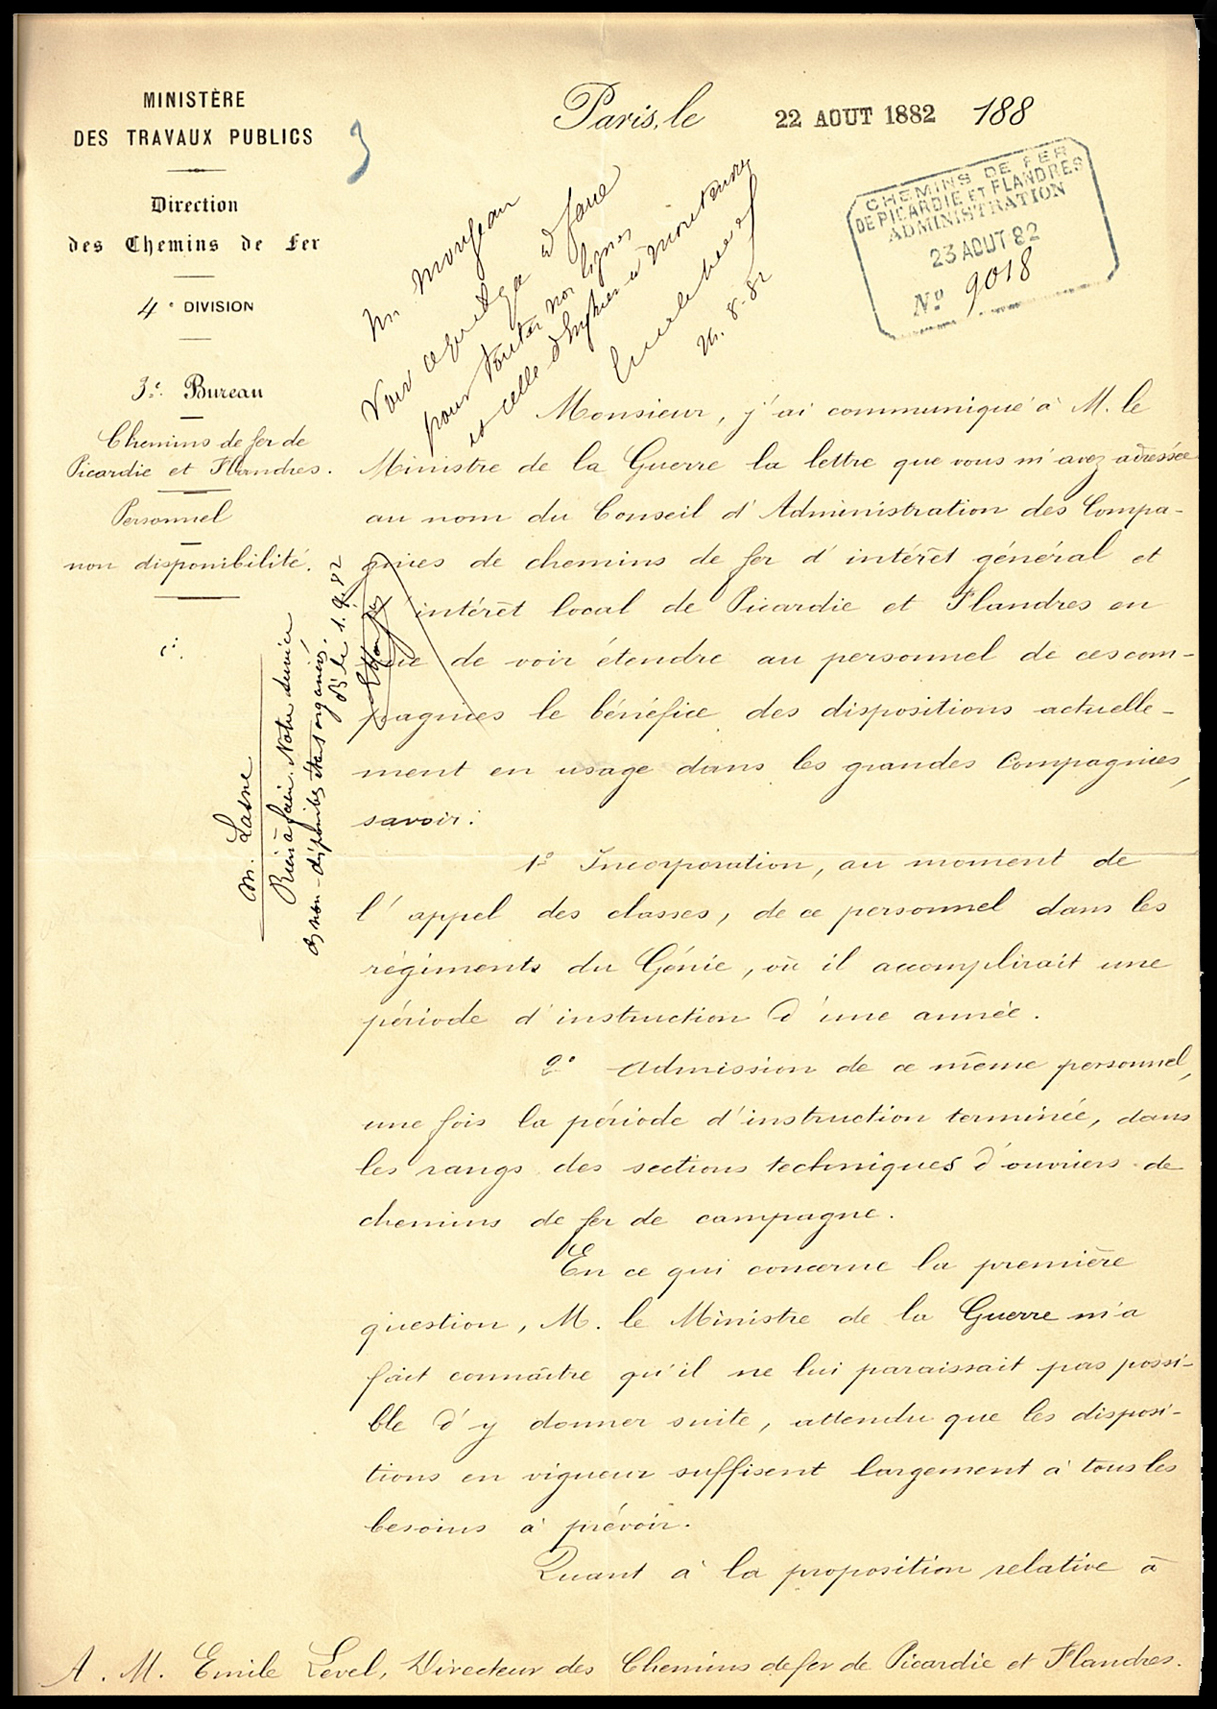 MINISTÈRE
DES TRAVAUX PUBLICS
Direction
des Chemins de Fer
4e DIVISION
3e. Bureau
Chemins de fer de
Picardie et Flandres.
Personnel
non disponibilité.
Paris, le 22 AOUT 1882 188
3
CHEMINS DE FER
DE PICARDIE ET FLANDRES
ADMINISTRATION
23 AOUT 82
No 9018
M. Monjean
Voir ce qu'il y a à faire
pour toutes nos lignes
et celle d'Enghien à Montmorency
8. 82
M. Lasne
Rien à faire. Notre service
de non-disponibles étant organisé.
P. le 1. 9. 82
Monsieur, j'ai communiqué à M. le
Ministre de la Guerre la lettre que vous m'avez adressée
au nom du Conseil d'Administration des Compa-
gnies de chemins de fer d'intérêt général et
d'intérêt local de Picardie et Flandres en
vue de voir étendre au personnel de ces com-
pagnies le bénéfice des dispositions actuelle-
ment en usage dans les grandes Compagnies,
savoir:
1o Incorporation, au moment de
l'appel des classes, de ce personnel dans les
régiments du Génie, où il accomplirait une
période d'instruction d'une année.
2o Admission de ce même personnel,
une fois la période d'instruction terminée, dans
les rangs des sections techniques d'ouvriers de
chemins de fer de campagne.
En ce qui concerne la première
question, M. le Ministre de la Guerre m'a
fait connaître qu'il ne lui paraissait pas possi-
ble d'y donner suite, attendu que les disposi-
tions en vigueur suffisent largement à tous les
besoins à prévoir.
Quant à la proposition relative à
A. M. Emile Level, Directeur des Chemins de fer de Picardie et Flandres.